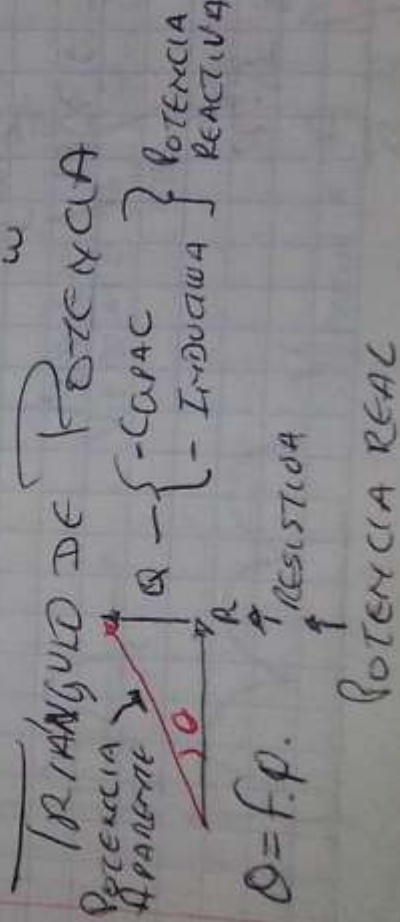 ω
TRIÁNGULO DE POTENCIA
POTENCIA
APARENTE
Q - { - CAPAC
- INDUCTIVA } POTENCIA
REACTIVA
θ
R
RESISTIVA
θ = f.p.
POTENCIA REAL